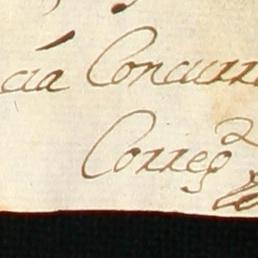 cia Concurr
Correg.